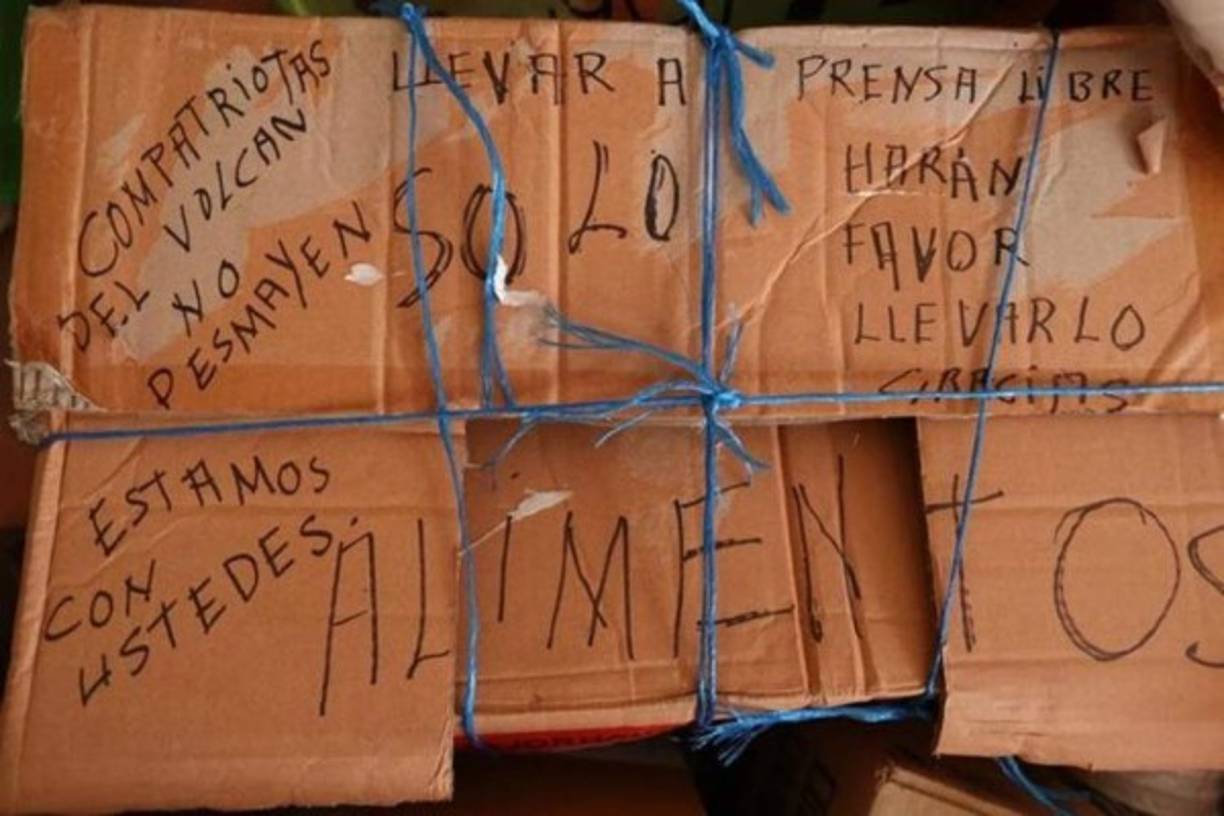 COMPATRIOTAS
DEL VOLCAN
NO
DESMAYEN
LLEVAR A PRENSA LIBRE
SOLO
HARÁN
FAVOR
LLEVARLO
GRACIAS
ESTAMOS
CON
USTEDES.
ALIMENTOS